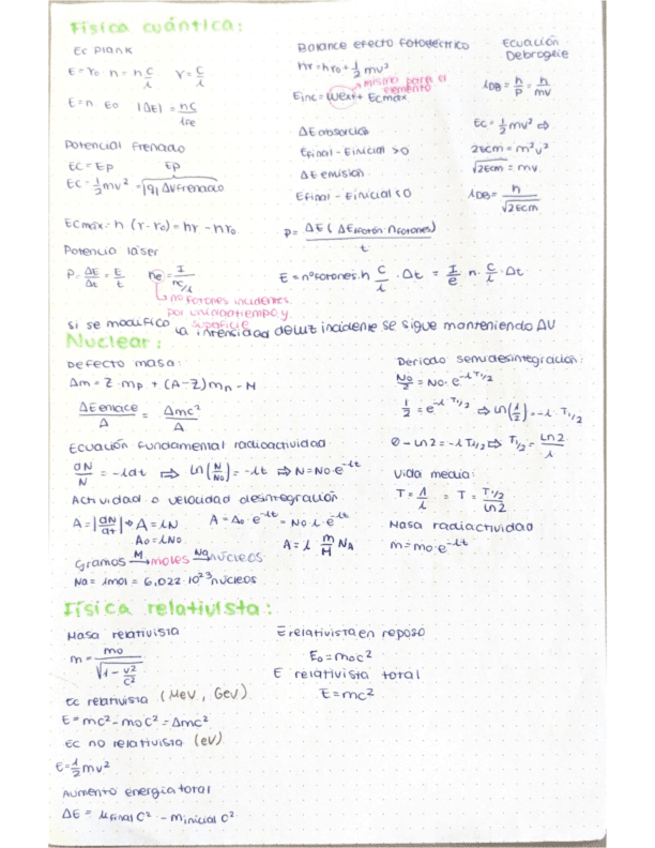 Física cuántica:
Ec Plank
E = r₀ · n = h c/λ   γ = c/λ
E = n · E₀   |ΔE| = hc/λFe
Potencial Frenado
Ec = Ep   Ep
Ec = 1/2 mv² = |q| ΔVfrenado
Ecmáx = h (γ - γ₀) = hγ - hγ₀
Potencia láser
P = ΔE/Δt = E/t   ne = I / hc/λ
nº fotones incidentes
por unidad tiempo y
superficie
Balance efecto fotoeléctrico
hγ = hγ₀ + 1/2 mv²
mismo para el
elemento
Einc = Wext + Ecmax
ΔE absorción
Efinal - Einicial > 0
ΔE emisión
Efinal - Einicial < 0
P = ΔE (ΔEfotón · nfotones) / t
E = nºfotones · h c/λ · Δt = I/e · h · c/λ · Δt
Ecuación
Debroglie
λDB = h/p = h/mv
Ec = 1/2 mv² ⇒
2Ecm = m²v²
√2Ecm = mv
λDB = h/√2Ecm
si se modifica la intensidad de luz incidente se sigue manteniendo ΔV
Nuclear:
Defecto masa:
Δm = Z · mp + (A-Z) mn - M
ΔEenlace/A = Δmc²/A
Ecuación fundamental radioactividad
dN/N = -λdt ⇒ ln(N/N₀) = -λt ⇒ N = N₀ · e^-λt
Actividad o velocidad desintegración
A = |dN/dt| ⇒ A = λN   A = A₀ · e^-λt = N₀ · λ · e^-λt
A₀ = λN₀   A = λ m/M NA
Gramos →M moles →Na núcleos
Na = 1mol = 6,022 · 10²³ núcleos
Periodo semidesintegración:
N₀/2 = N₀ · e^-λ T1/2
1/2 = e^-λ T1/2 ⇒ ln(1/2) = -λ · T1/2
0 - ln2 = -λ T1/2 ⇒ T1/2 = Ln2/λ
Vida media:
T = 1/λ = T = T1/2 / ln2
Masa radiactividad
m = m₀ · e^-λt
Física relativista:
Masa relativista
m = m₀/√1 - v²/c²
Ec relativista (MeV, GeV)
E = mc² - m₀c² = Δmc²
Ec no relativista (eV)
E = 1/2 mv²
Aumento energía total
ΔE = Mfinal c² - minicial c²
E relativista en reposo
E₀ = m₀c²
E relativista total
E = mc²